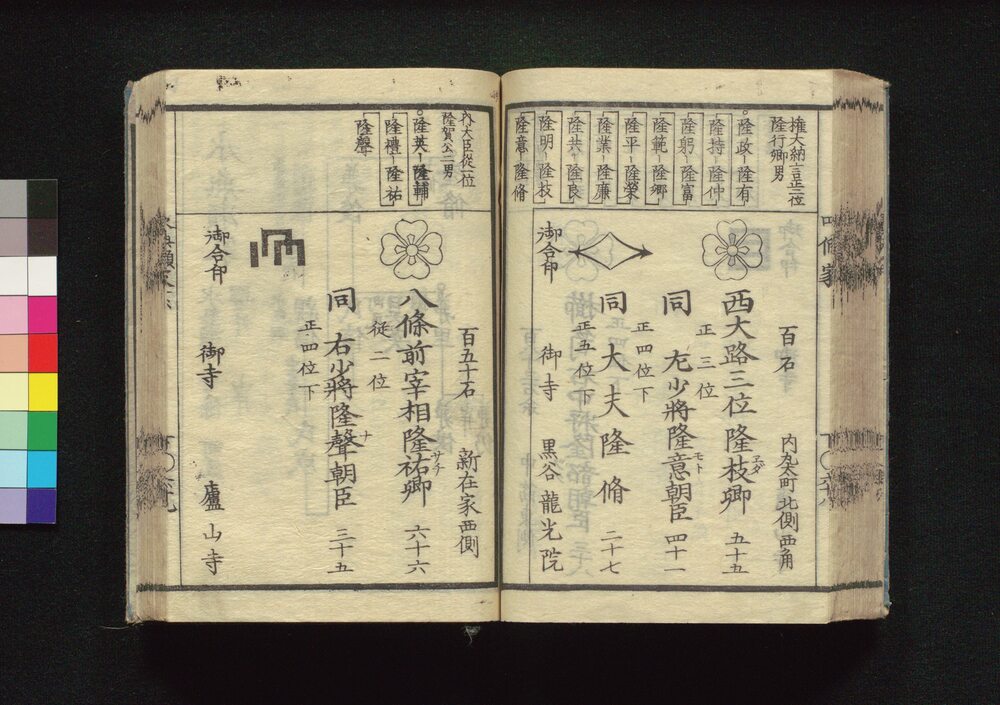 四條家
權大納言正二位
隆行卿男
隆政-隆有
隆持-隆仲
隆躬-隆富
隆範-隆郷
隆平-隆榮
隆業-隆廉
隆共-隆良
隆明-隆枝
隆意-隆脩
百石 内丸太町北側西角
西大路三位隆枝卿 五十五
エダ
正三位
同 左少將隆意朝臣 四十一
モト
正四位下
同 大夫隆脩 二十七
正五位下
御合印 御寺 黒谷龍光院
内大臣從一位
隆賀公二男
隆英-隆輔
隆禮-隆祐
隆聲
百五十石 新在家西側
八條前宰相隆祐卿 六十六
サチ
從二位
同 右少將隆聲朝臣 三十五
ナ
正四位下
御合印 御寺 廬山寺